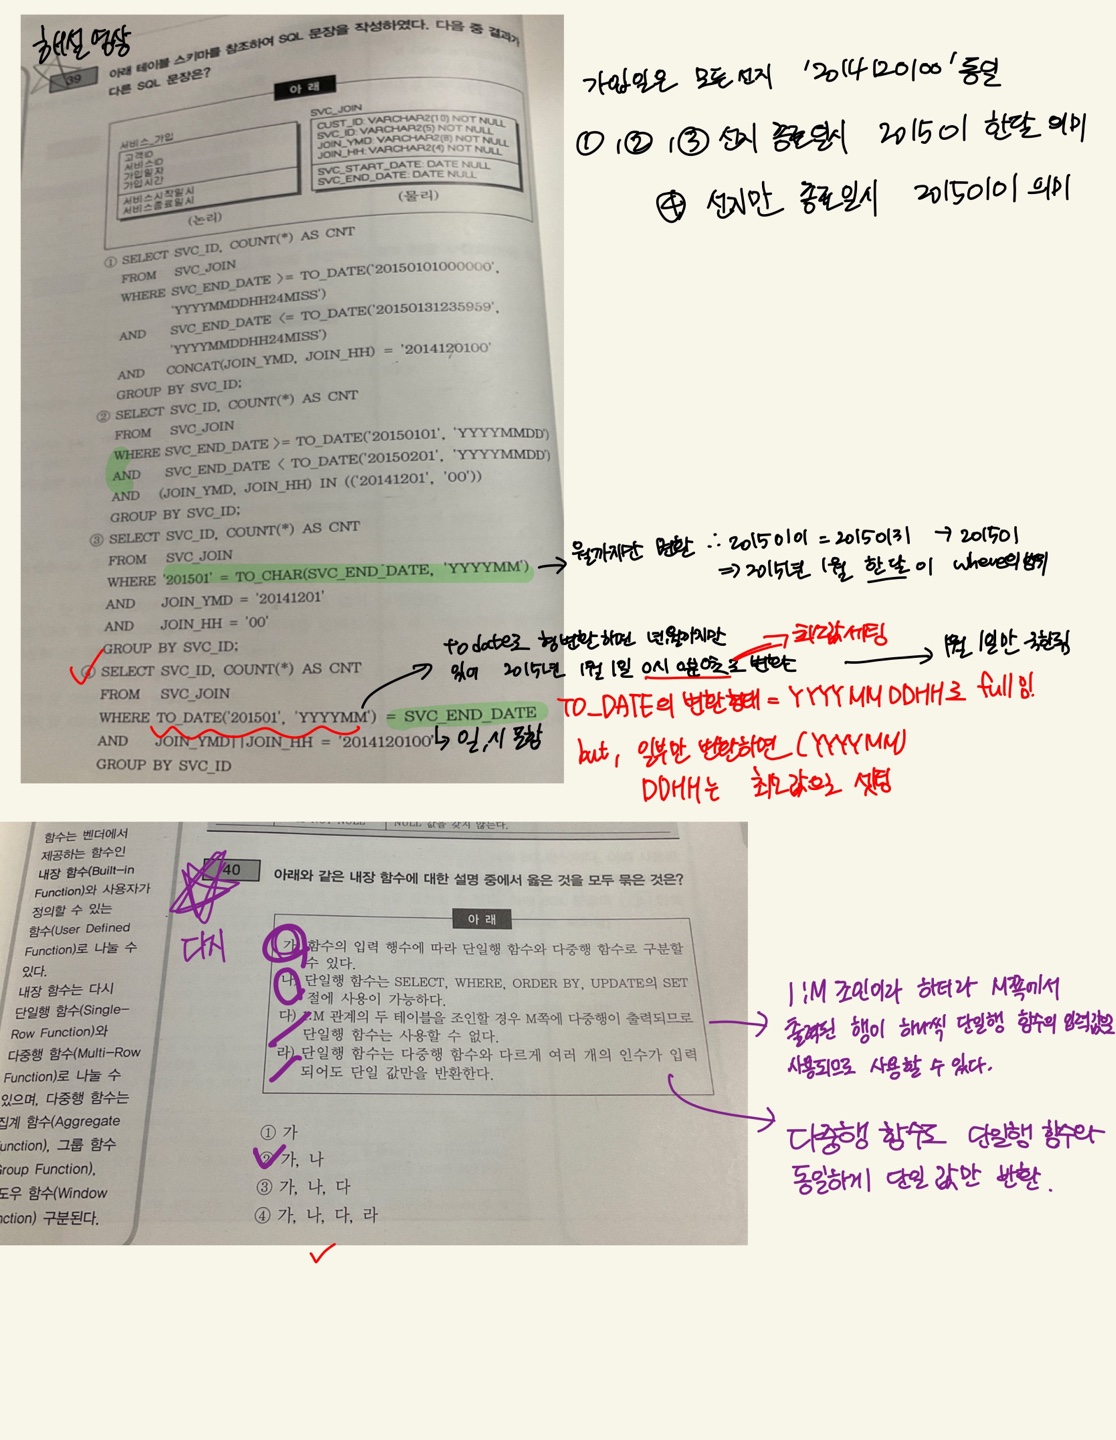 해설 영상
39 아래 테이블 스키마를 참조하여 SQL 문장을 작성하였다. 다음 중 결과가
다른 SQL 문장은?
아 래
서비스_가입
고객ID
서비스ID
가입일자
가입시간
서비스시작일시
서비스종료일시
(논리)
SVC_JOIN
CUST_ID: VARCHAR2(10) NOT NULL
SVC_ID: VARCHAR2(5) NOT NULL
JOIN_YMD: VARCHAR2(8) NOT NULL
JOIN_HH: VARCHAR2(4) NOT NULL
SVC_START_DATE: DATE NULL
SVC_END_DATE: DATE NULL
(물리)
① SELECT SVC_ID, COUNT(*) AS CNT
FROM SVC_JOIN
WHERE SVC_END_DATE >= TO_DATE('20150101000000',
'YYYYMMDDHH24MISS')
AND SVC_END_DATE <= TO_DATE('20150131235959',
'YYYYMMDDHH24MISS')
AND CONCAT(JOIN_YMD, JOIN_HH) = '2014120100'
GROUP BY SVC_ID;
② SELECT SVC_ID, COUNT(*) AS CNT
FROM SVC_JOIN
WHERE SVC_END_DATE >= TO_DATE('20150101', 'YYYYMMDD')
AND SVC_END_DATE < TO_DATE('20150201', 'YYYYMMDD')
AND (JOIN_YMD, JOIN_HH) IN (('20141201', '00'))
GROUP BY SVC_ID;
③ SELECT SVC_ID, COUNT(*) AS CNT
FROM SVC_JOIN
WHERE '201501' = TO_CHAR(SVC_END_DATE, 'YYYYMM')
AND JOIN_YMD = '20141201'
AND JOIN_HH = '00'
GROUP BY SVC_ID;
④ SELECT SVC_ID, COUNT(*) AS CNT
FROM SVC_JOIN
WHERE TO_DATE('201501', 'YYYYMM') = SVC_END_DATE
AND JOIN_YMD||JOIN_HH = '2014120100'
GROUP BY SVC_ID
가입일은 모든 선지 '2014120100' 동일
①,②,③ 선지 종료일시 201501 한달 의미
④ 선지만 종료일시 20150101 의미
월까지만 변환 ∴ 20150101 = 20150131 → 201501
⇒ 2015년 1월 한달이 where의 범위
to date로 형변환하면 년월이지만
있어 2015년 1월 1일 0시 0분 0초로 변환
최소값 세팅
1월 1일만 국한됨
↳ 일,시 포함
TO_DATE의 변환형태 = YYYY MM DDHH로 full 임!
but, 일부만 변환하면 (YYYYMM)
DDHH는 최소값으로 셋팅
NULL 값을 갖지 않는다.
함수는 벤더에서
제공하는 함수인
내장 함수(Built-in
Function)와 사용자가
정의할 수 있는
함수(User Defined
Function)로 나눌 수
있다.
내장 함수는 다시
단일행 함수(Single-
Row Function)와
다중행 함수(Multi-Row
Function)로 나눌 수
있으며, 다중행 함수는
집계 함수(Aggregate
unction), 그룹 함수
roup Function),
도우 함수(Window
nction) 구분된다.
다시
40 아래와 같은 내장 함수에 대한 설명 중에서 옳은 것을 모두 묶은 것은?
아 래
가) 함수의 입력 행수에 따라 단일행 함수와 다중행 함수로 구분할
수 있다.
나) 단일행 함수는 SELECT, WHERE, ORDER BY, UPDATE의 SET
절에 사용이 가능하다.
다) 1:M 관계의 두 테이블을 조인할 경우 M쪽에 다중행이 출력되므로
단일행 함수는 사용할 수 없다.
라) 단일행 함수는 다중행 함수와 다르게 여러 개의 인수가 입력
되어도 단일 값만을 반환한다.
① 가
② 가, 나
③ 가, 나, 다
④ 가, 나, 다, 라
1:M 조인이라 하더라 M쪽에서
출력된 행이 하나씩 단일행 함수의 입력값으로
사용되므로 사용할 수 있다.
다중행 함수도 단일행 함수와
동일하게 단일 값만 반환.